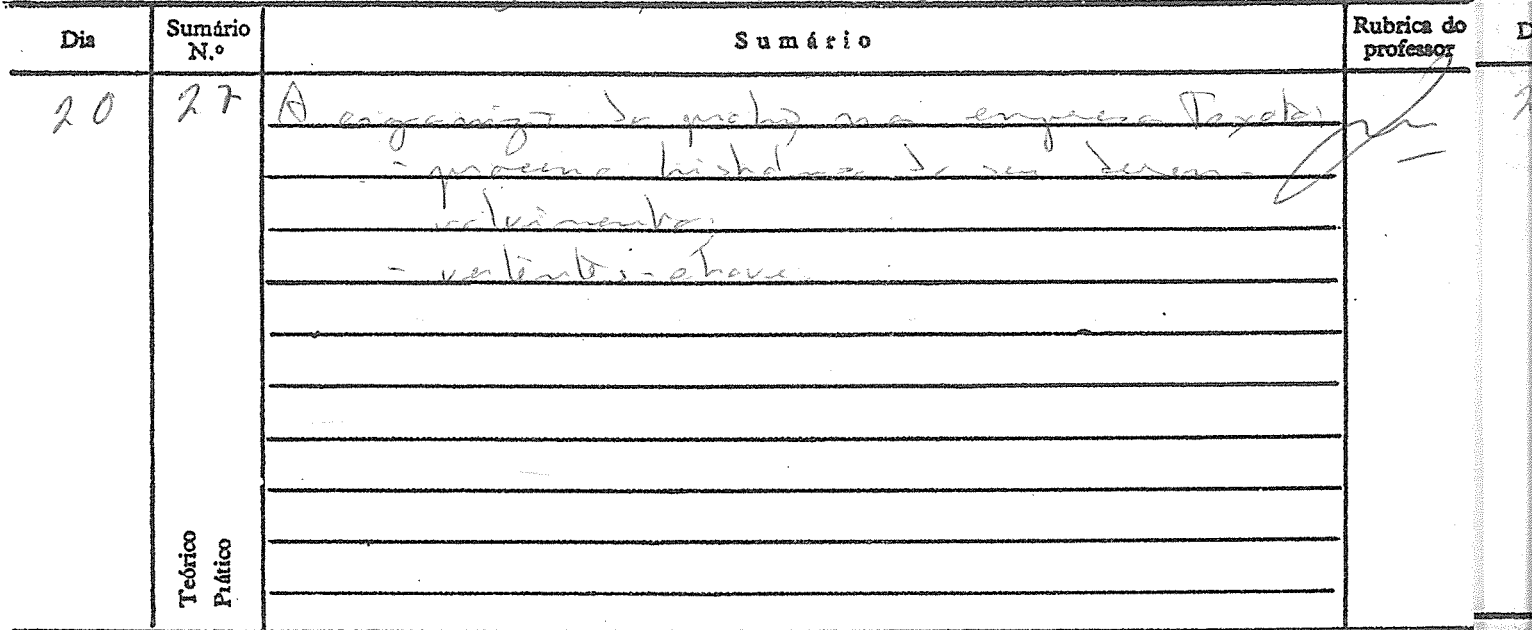 Dia
Sumário N.º
Sumário
Rubrica do professor
D
20
27
A organização do na empresa
- processo histórico do seu desen-
volvimento;
- vertentes-chave.
Teórico
Prático